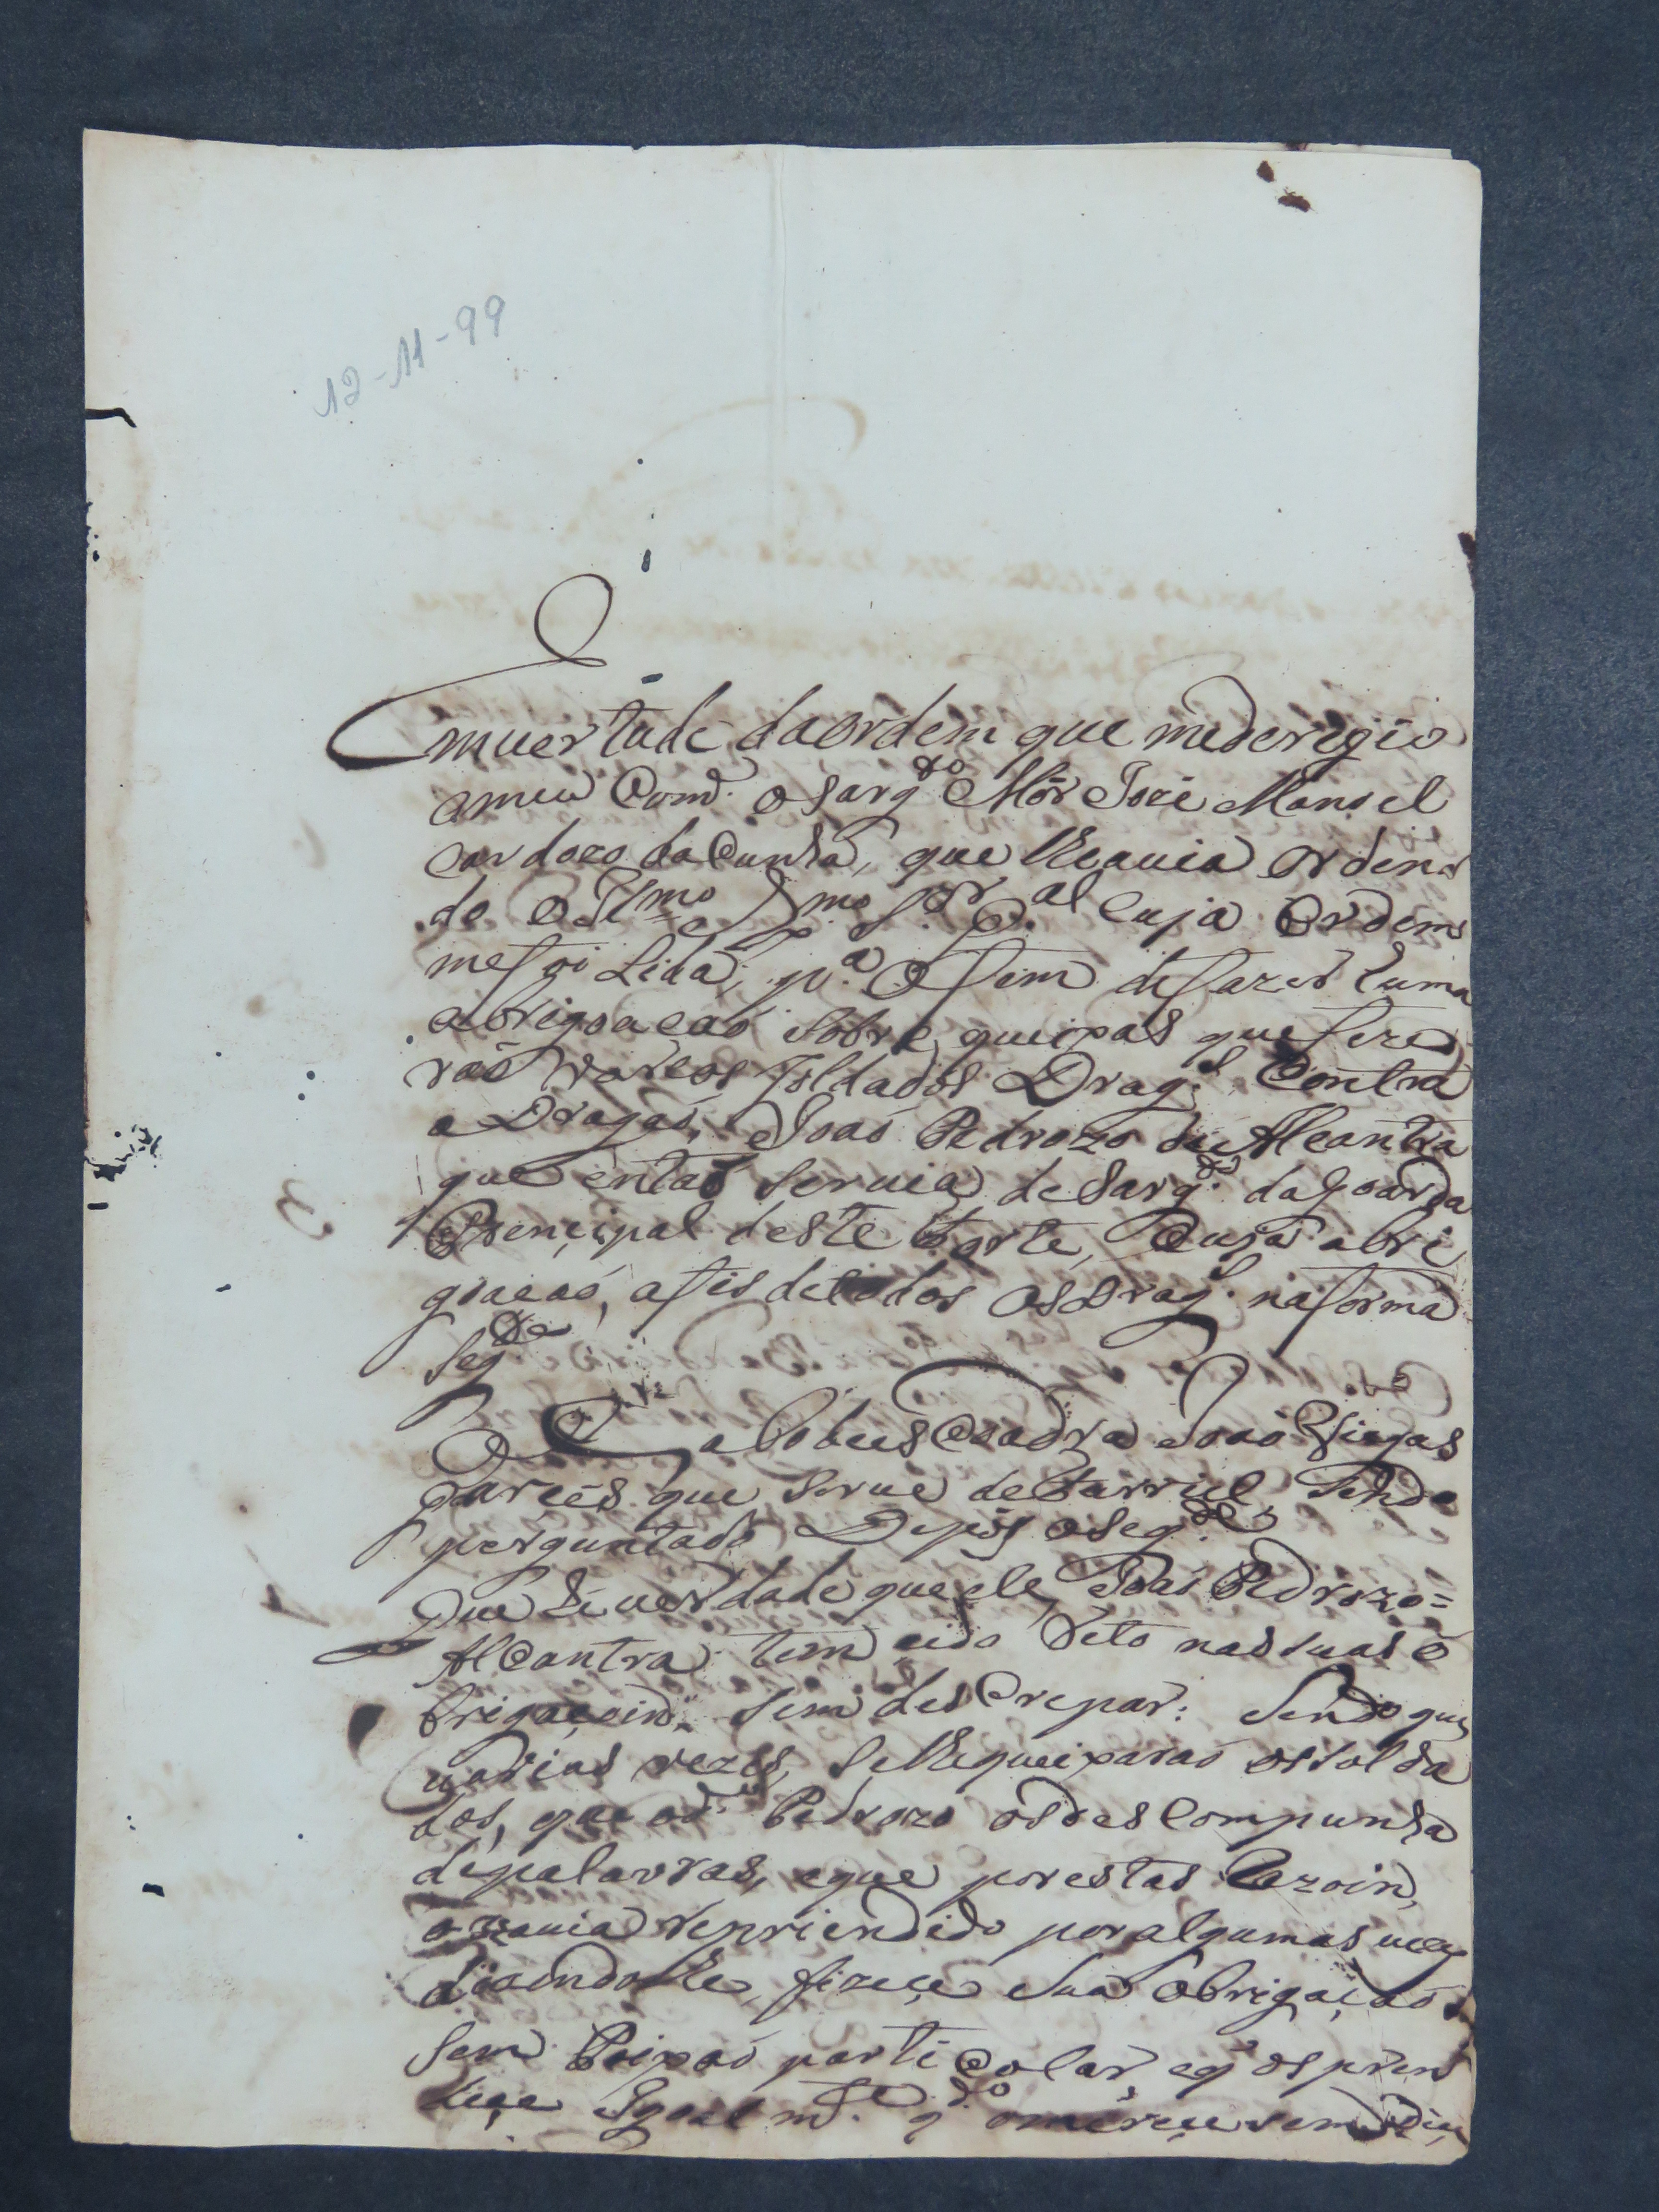 12-11-99
Emuertude daordem que mederegio
omeu Comd. o Sarg.to Mór Jozé Manoel
Cardozo daCunha, que lhe auia ordena
do o Il.mo e Ex.mo S.or G.al Cuja Ordem
mefoi Lida; p.a ofim defazer huma
abrigoaçaõ sobre queixas que feze
raõ varios Soldados Drag.s Contra
o Dragaõ, Joaõ Pedrozo de Alcantra
que entaõ seruia de Sarg.to daGoarda
Prencipal deste Forte, Cuja abri
goaçaõ, afis detodos osDrag.s naforma
Seg.te
O Cabo de esCoadra Joaõ Viegas
que serue deFurriel Sendo
perguntado Depôs oseg.te
Que hé uerdade que ele Joaõ Pedrozo=
AlCantra tem cido Reto nassuas o
brigaçoins, sem desCrepar: Sendo que
varias vezes, selhequeixaraõ ossolda
dos, que od.o Pedrozo osdesCompunha
depalavras, eque porestas Razoins,
ohauia repriendido poralgumas uezes
dizendolhe fizece Sua Obrigaçaõ
Sem Paixaõ partiColar, eq' ospren
dece Igoalm.te q.do omerece sem